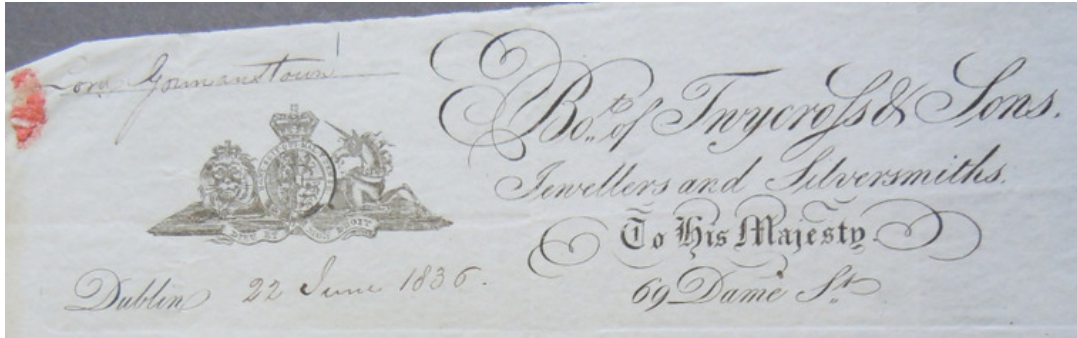 Lord Gormanstown
Bo.t of Twycross & Sons.
Jewellers and Silversmiths.
To His Majesty
69 Dame St
DIEU ET MON DROIT
Dublin 22 June 1836.